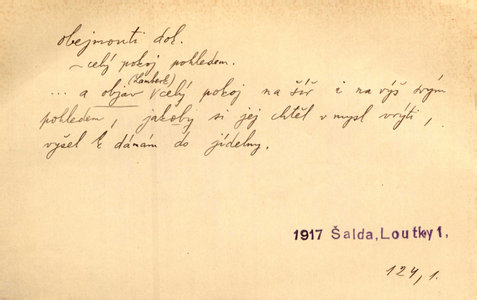 obejmouti dok.
~ celý pokoj pohledem.
(Lambert)
... a objav celý pokoj na šíř i na výš svým
pohledem, jakoby si jej chtěl v mysl vrýti,
vyšel k dámám do jídelny.
1917 Šalda, Loutky 1,
124, 1.